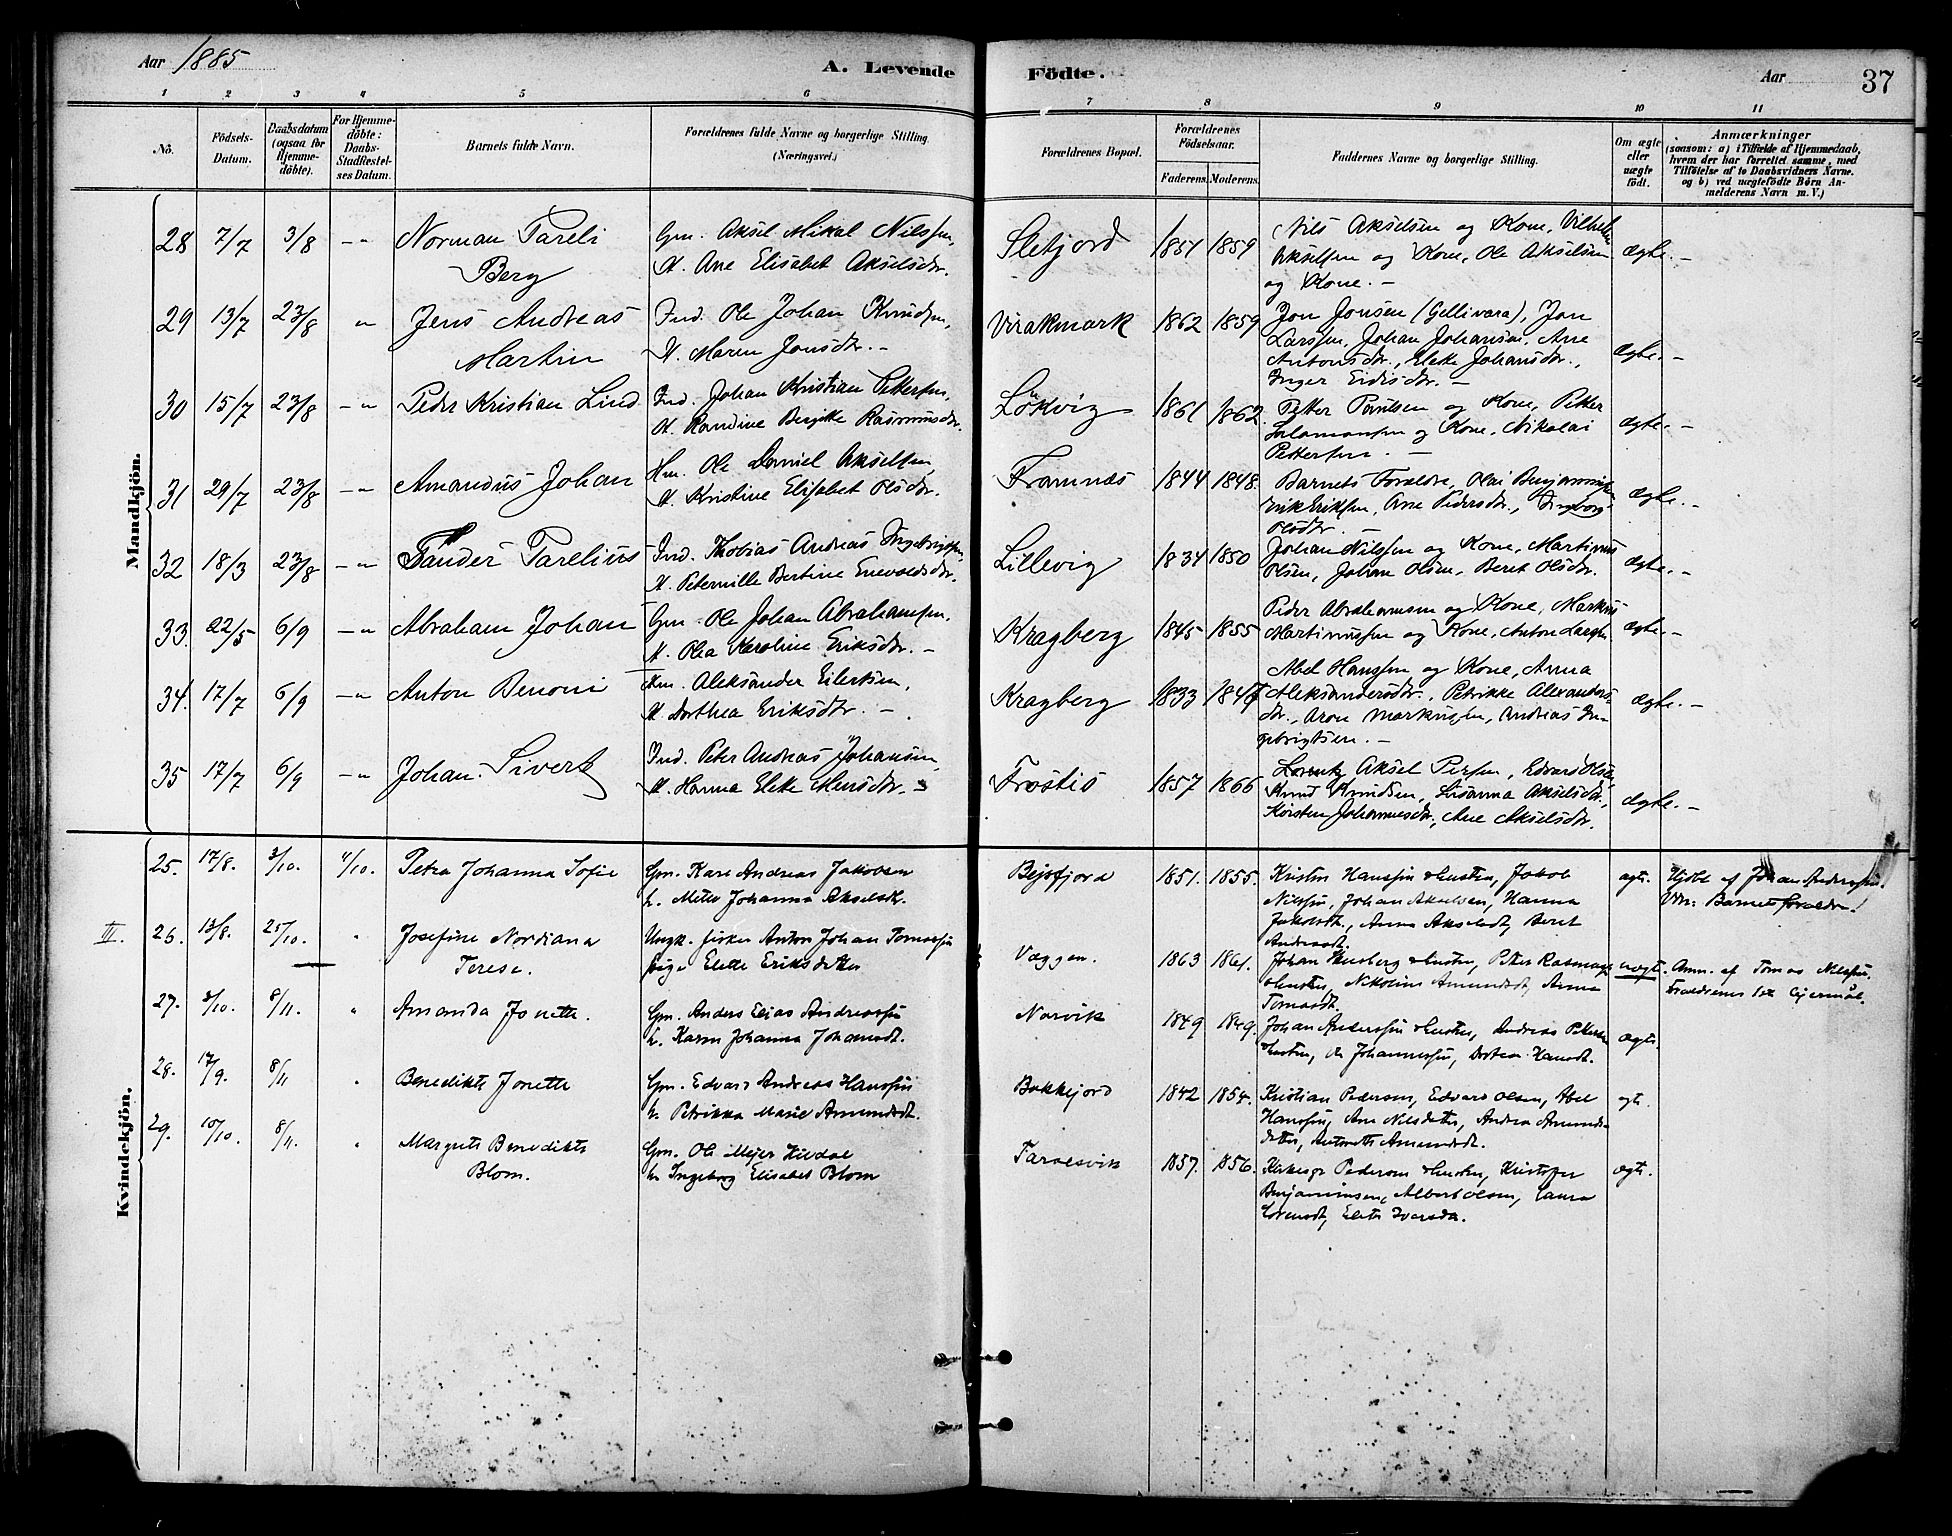 Aar 1885
A. Levende Födte.
Aar
37
1 2 3 4 5 6 7 8 9 10 11
Nö.
Födsels-Datum.
Daabsdatum (ogsaa for Hjemme-döbte).
For Hjemme-döbte: Daabs-Stadfæstel-ses Datum.
Barnets fulde Navn.
Forældrenes fulde Navne og borgerlige Stilling. (Næringsvei.)
Forældrenes Bopæl.
Forældrenes Födselsaar.
Faderens. Moderens.
Faddernes Navne og borgerlige Stilling.
Om ægte eller uægte födt.
Anmærkninger (saasom: a) i Tilfælde af Hjemmedaab, hvem der har forrettet samme, med Tilföielse af to Daabsvidners Navne. og b) ved uægtefödte Börn An-melderens Navn m. V.)
Mandkjön.
28 7/7 3/8 -"- Norman Pareli
Berg
Gm. Aksel Mikal Nilssen,
H. Ane Elisabet Akselsdtr.
Sletjord 1851 1859
Nils Akselsen og Kone, Vilhelm
Akselsen og Kone, Ole Akselsen
og Kone. –
Ægte. –
29 13/7 23/8 " Jens Andreas
Martin
Ind. Ole Johan Knudsen,
H. Maren Jonsdtr. –
Virakmark 1862 1859
Jon Jonsen (Gellivara), Jon
Larssen, Johan Johansen, Ane
Antonsdtr., Elete Johansdtr.,
Inger Eidisdtr. –
Ægte. –
30 15/7 23/8 -"- Peder Kristian Lind
Ind. Johan Kristian Pettersen,
H. Randine Bergitte Rasmusdtr.
Lökvig 1861 1862
Petter Paulsen og Kone, Petter
Salamonsen og Kone, Nikolai
Pettersen. –
Ægte. –
31 29/7 23/8 -"- Amandus Johan
Hm. Ole Daniel Akselsen,
H. Kristine Elisabet Olsdtr.
Framnæs 1844 1848.
Barnets Forældre, Olai Benjaminsen
Erik Eriksen, Ane Pedersdtr., Ingeborg
Olsdtr. –
Ægte. –
32 18/3 23/8 -"- Sander Parelius
Ind. Thobias Andreas Ingebrigtsen,
H. Peternille Bertine Enevoldsdtr.
Lillevig 1834 1850
Johan Nilssen og Kone, Martinus
Olsen, Johan Olsen, Beret Olsdtr.
Ægte. –
33. 22/5 6/9 -"- Abraham Johan
Gm. Ole Johan Abrahamsen,
H. Olea Karoline Eriksdtr. –
Kragberg 1845 1855
Peder Abrahamsen og Kone, Markus
Martinussen og Kone, Anton
Ægte. –
34. 17/7 6/9 -"- Anton Benoni
Km. Aleksander Eilertsen,
H. Dorthea Eriksdtr. –
Kragberg 1833 1847
Abel Hanssen og Kone, Anna
Aleksandersdtr., Petrikke Alexanders-
dtr., Aron Markussen, Andreas In-
gebrigtsen. –
Ægte. –
35 17/7 6/9 -"- Johan Sivert
Ind. Peter Andreas Johansen,
H. Hanna Elete Mensdtr.
Frostis 1857 1866
Aksel Persen, Edvard Olsen,
Knud Knudsen, Susanna Akselsdtr.,
Kirsten Johannesdtr., Ane Akselsdtr.
Ægte. –
Kvindekjön.
25. 17/8. 3/10. 4/10. Petra Johanna Sofie
Gm. Kare Andreas Jakobsen
h. Meter Johanna Akselsdtr.
Bejsfjord 1851. 1855.
Kristen Hanssen & hustru, Jakob
Nilssen, Johan Akselsen, Hanna
Jakobsdt., Anna Akselsdt, Beret
Andreasdt.
ægte.
Hjdbt af Johan Anderssen.
Vdn: Barnets forældre!
III. 26. 13/8. 25/10. " Josefine Nordiana
Terese.
Ungk. fisker Anton Johan Tomassen
pige Elete Eriksdatter
Væggen. 1863 1861.
Johan Husberg & hustru, Peter Rasmussen
& hustru, Nikoline Amundsdt, Anna
Tomasdt.
uægte.
Anm. af Tomas Nilssen.
Forældrenes 1ste lejermål.
27. 2/10. 8/11. " Amanda Jonette.
Gm. Anders Elias Andreassen
h. Karen Johanna Johansdt.
Narvik 1849 1849.
Johan Anderssen & hustru, Andreas Petersen
& hustru, Ole Johannessen, Dortea Hansdt.
ægte.
28. 17/9. 8/11 " Benedikte Jonette
Gm. Edvard Andreas Hanssen
h. Petrikka Marie Amundsdt.
Bukkejord 1842 1854.
Kristian Pedersen, Edvard Olsen, Abel
Hanssen, Ane Nilsdatter, Andrea Amunds-
datter, Antonette Amundsdt.
ægte.
29. 10/10. 8/11. " Margrete Benedikte
Blom.
Gm. Ole Mejer Hivdal
h. Ingeborg Elisabet Blom
Taraldsvik 1857. 1856.
Pedersen & hustru, Kristofer
Benjaminsen, Albert Olsen, Laura
Lorensdt, Elete Iversdtr.
ægte.